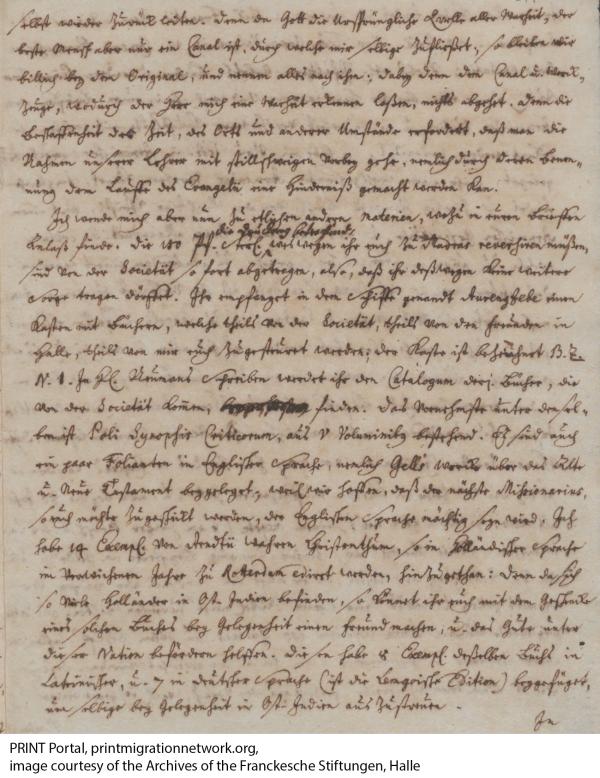 selbst wieder zurück leiten. Denn da Gott die ursprüngliche Quelle aller Wahrheit, der
beste Mensch aber nur ein Canal ist, durch welche mir selbige zufließet, so bleiben wir
billich bey dem Original, und nennen alles nach ihm; dabey denn dem Canal u. Werck-
zeuge, wodurch der Herr mich eine Wahrheit erkennen laßen, nichts abgehet. Denn die
Beschaffenheit der Zeit, des Orts und anderer Umstände erfordert, daß man die
Nahmen unserer Lehrer mit stillschweigen vorbey gehe, nemlich durch deren benen-
nung dem Lauffe des Evangelii eine Hinderniß gemacht werden kan.
Ich wende mich aber nun zu etlichen anderen Materien, wozu in euren Brieffen
Anlaß finde. Die 100 Pf. Sterl. weswegen ihr euch zu Madras reverhiren müßen,
sind von der Societät so fort abgetragen, also, daß ihr deßwegen keine weitere
Sorge tragen dörffet. Ihr empfanget in dem Schiffe genandt Aurengzebe einen
Kasten mit Büchern, welche theils von der Societät, theils von den Freunden in
Halle, theils von mir euch zugesteuret werden; der Kaste ist bezeichnet B. Z.
N. 1. In H. Neumans Schreiben werdet ihr den Catalogum derj. Bücher, die
von der Societät komen, finden. Das Vornehmste unter densel-
ben ist Poli Synopsis Criticorum, aus V Voluminib. bestehend. Es sind auch
ein paar Folianten in Englischer Sprache, nemlich Gells werck über das Alte
u. Neue Testament beygeleget, weil wir hoffen, daß der nächste Missionarius,
so euch möchte zugeschickt werden, der Englischen Sprache mächtig seyn wird. Ich
habe 14 Exempl. von Arndts wahren Christenthum, so in Holländischer Sprache
im verwichenen Jahre zu Rotterdam edirt worden, hinzugethan: Denn da sich
so viele Holländer in Ost-Indien befinden, so könnet ihr euch mit dem Geschencke
eines solchen Buches bey Gelegenheit einen Freund machen, u. das Gute unter
dieser Nation befördern helffen. Diesen habe 8 Exempl. deßelben Buchs in
Lateinischer, u. 7 in deutscher Sprache (ist die Edition) beygefüget,
um selbige bey Gelegenheit in Ost-Indien auszustreuen.
In
PRINT Portal, printmigrationnetwork.org,
image courtesy of the Archives of the Franckesche Stiftungen, Halle